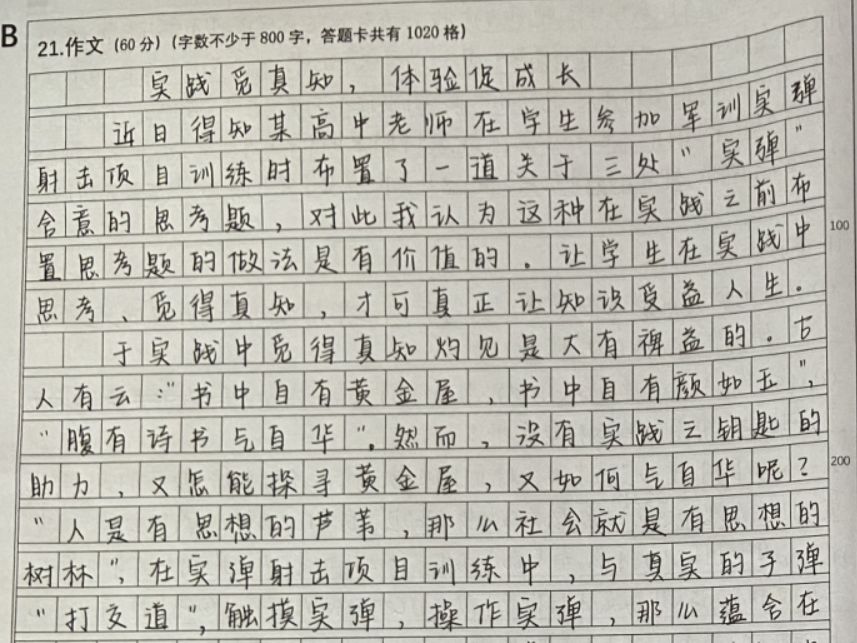 B
21.作文 (60 分) (字数不少于 800 字，答题卡共有 1020 格)
实战觅真知，体验促成长
近日得知某高中老师在学生参加军训实弹
射击项目训练时布置了一道关于三处“实弹”
含意的思考题，对此我认为这种在实战之前布
置思考题的做法是有价值的。让学生在实战中
100
思考、觅得真知，才可真正让知识受益人生。
于实战中觅得真知灼见是大有裨益的。古
人有云：“书中自有黄金屋，书中自有颜如玉”，
“腹有诗书气自华”。然而，没有实战之钥匙的
助力，又怎能探寻黄金屋，又如何气自华呢？
200
“人是有思想的芦苇，那么社会就是有思想的
树林”，在实弹射击项目训练中，与真实的子弹
“打交道”，触摸实弹，操作实弹，那么蕴含在